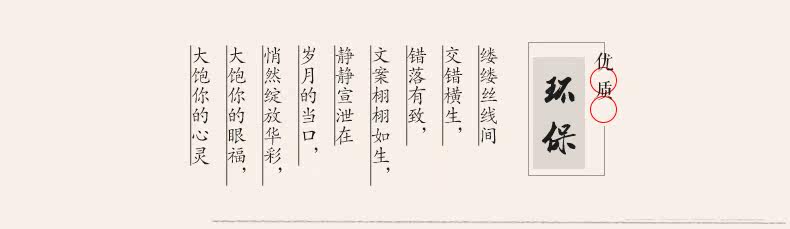 优质
环保
缕缕丝线间
交错横生，
错落有致，
文案栩栩如生，
静静宣泄在
岁月的当口，
悄然绽放华彩，
大饱你的眼福，
大饱你的心灵